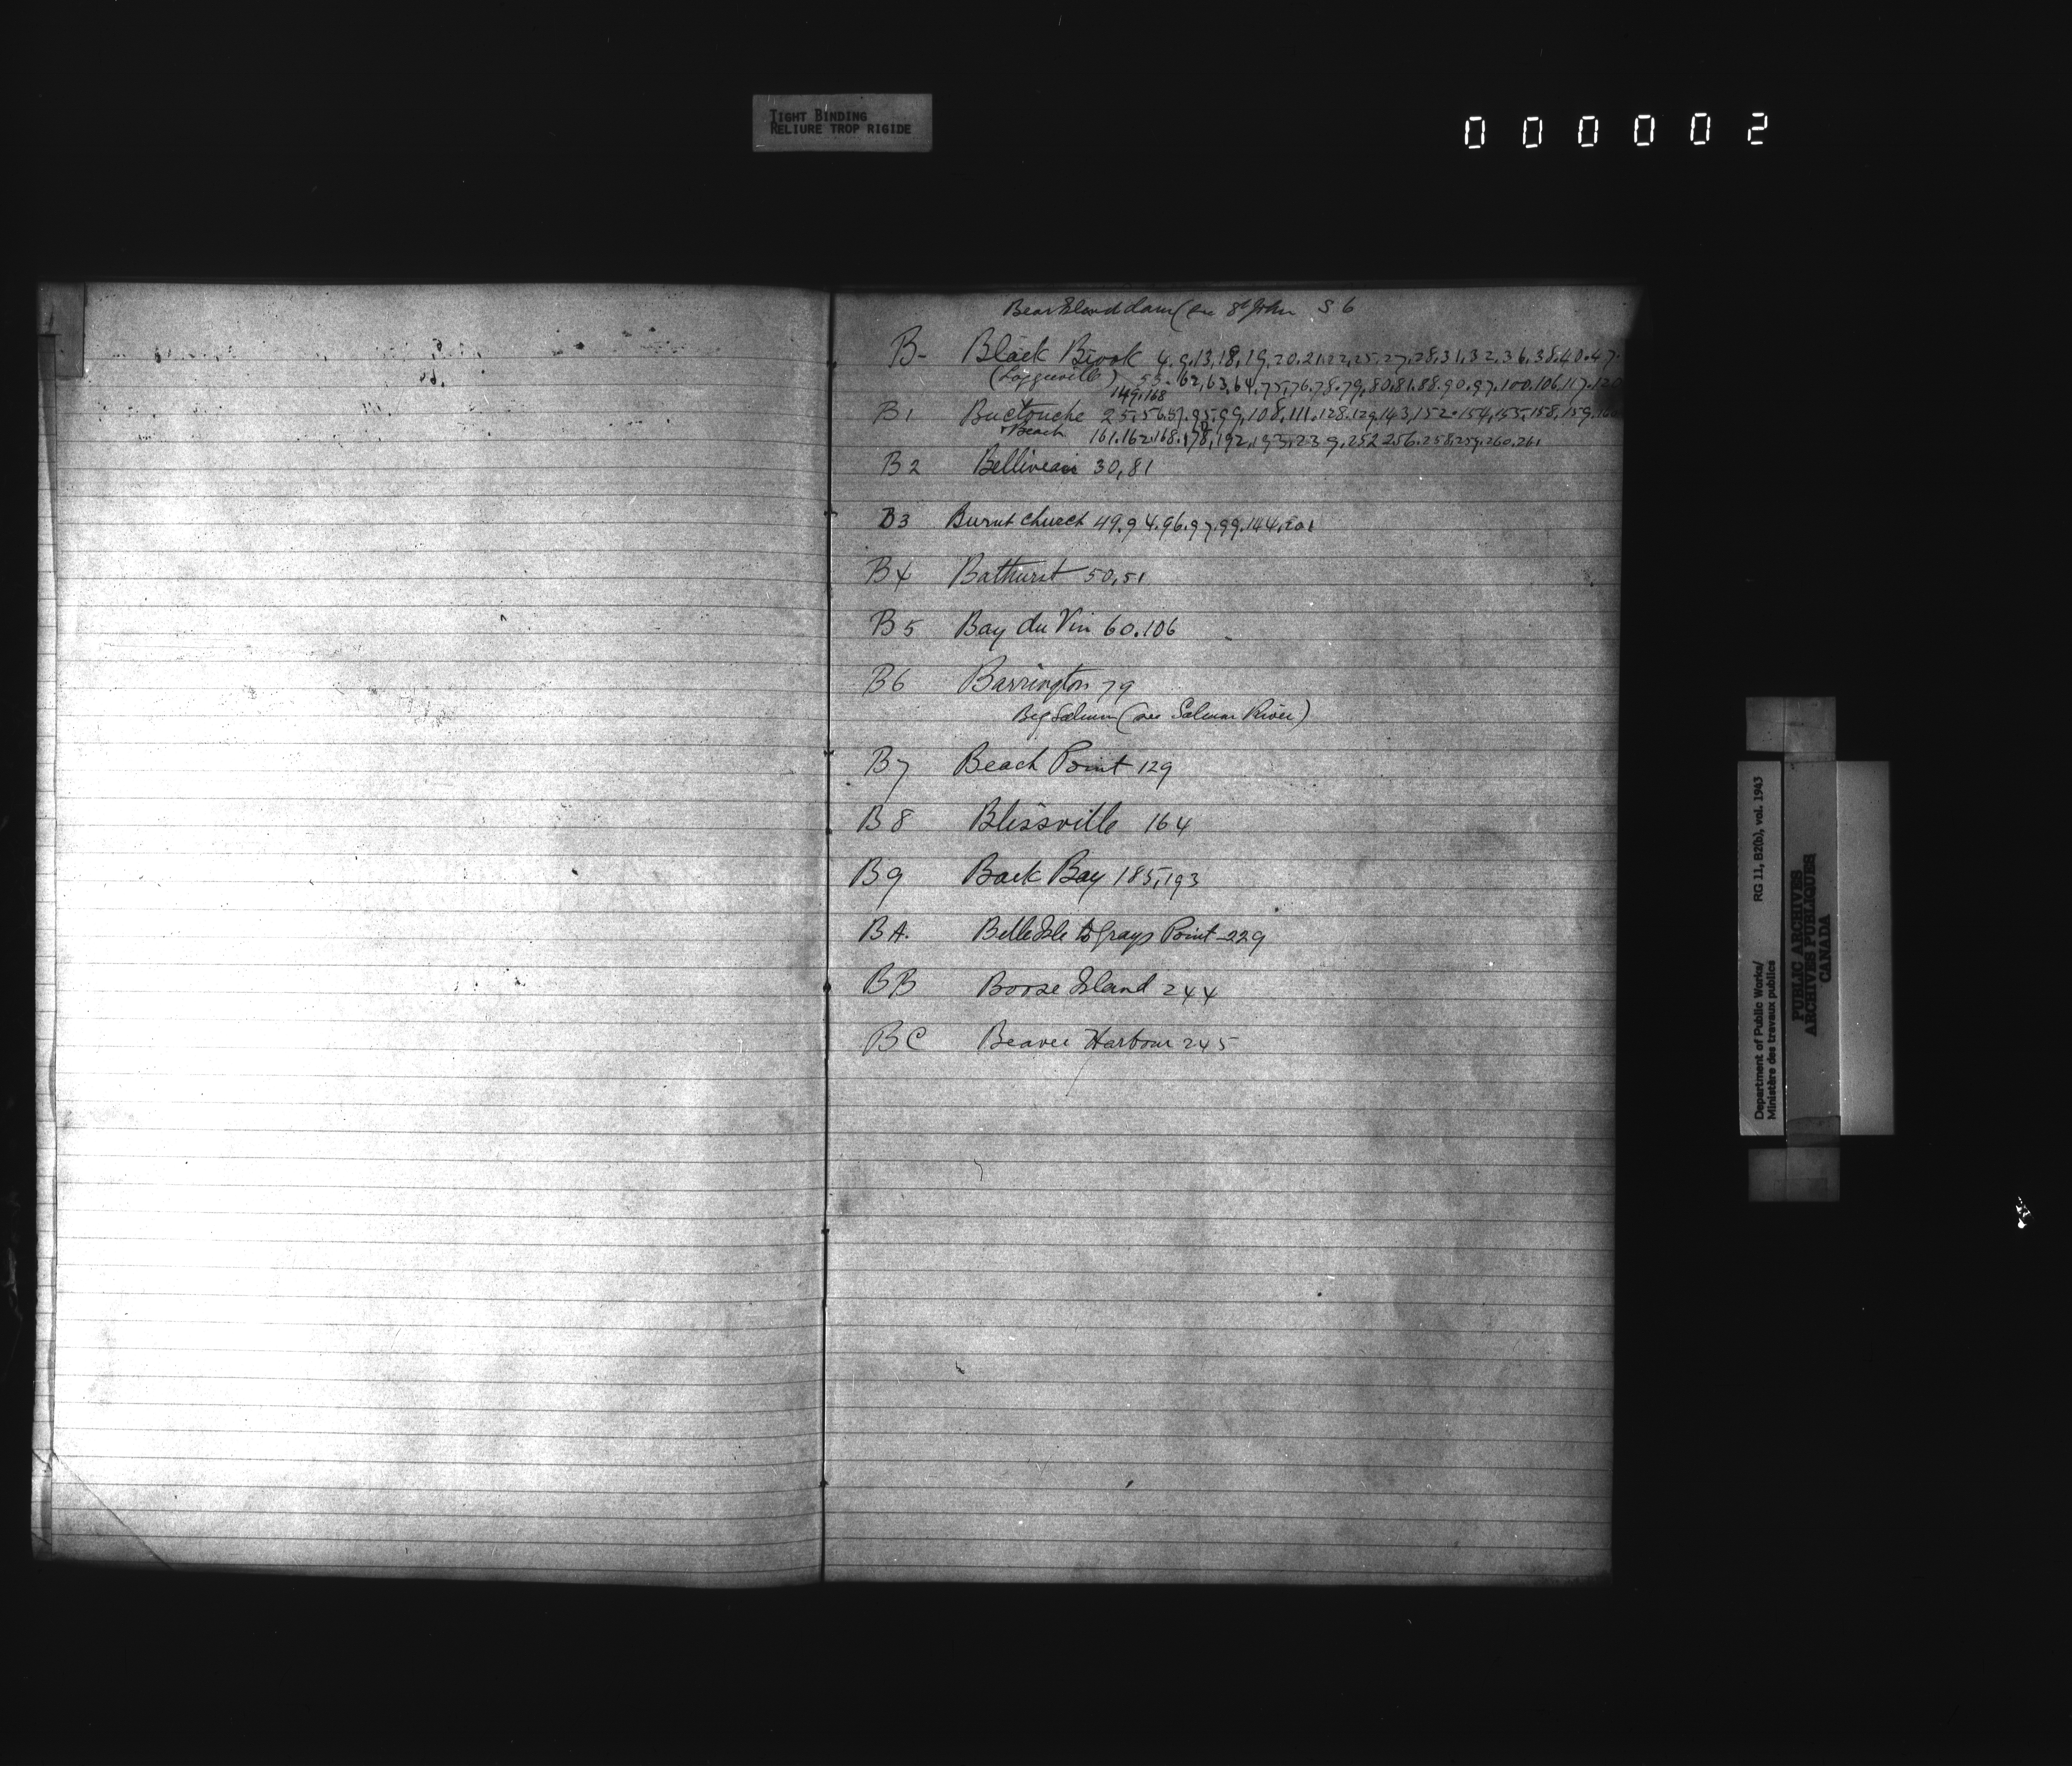 TIGHT BINDING
RELIURE TROP RIGIDE
000002
Bear Island dam (see St John S 6
B- Black Brook 4.9,13,18,19,20,21,22,25,27,28,31,32,36,38,40.47.
(Loggieville) 53-62,63,64,75,76.78.79,80,81,88.90,97,100,106,117.120
149,168
B1 Buctouche 25,56,57,95,99,108,111.128.129,143,152.154,155,158,159,160
+ Beach 161.162.168.178,192,193,239,252 256.258,259,260,261
B2 Belliveau 30,81
B3 Burnt Church 49.94.96.97.99.144,201
B4 Bathurst 50,51
B5 Bay du Vin 60.106
B6 Barrington 79
Big Salmon (see Salmon River)
B7 Beach Point 129
B8 Blissville 164
B9 Back Bay 185,193
BA. Belle Isle to Grays Point 229
BB Boose Island 244
BC Beaver Harbour 245
Department of Public Works/ RG 11, B2(b), vol. 1943
Ministère des travaux publics
PUBLIC ARCHIVES
ARCHIVES PUBLIQUES
CANADA